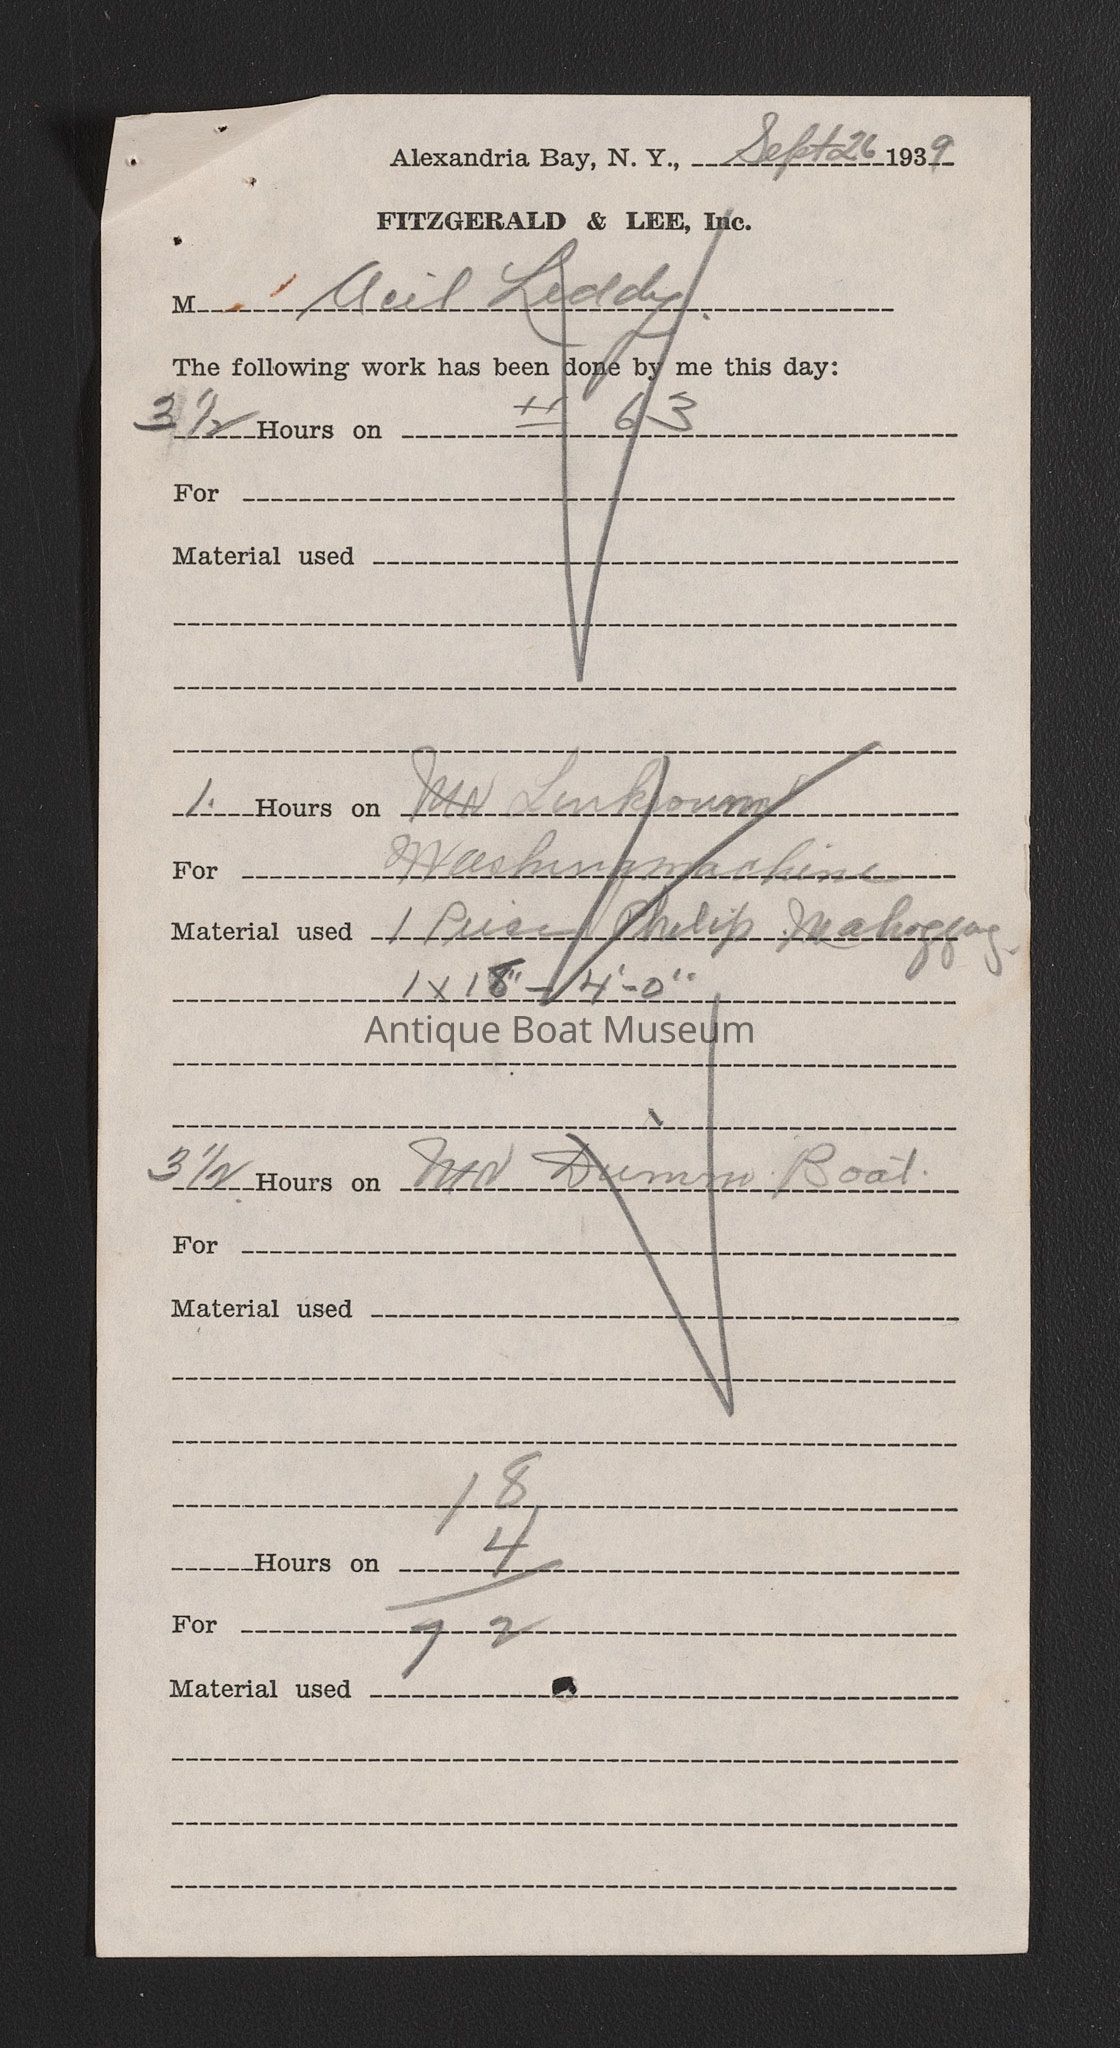 Alexandria Bay, N. Y., Sept 26 1939
FITZGERALD & LEE, Inc.
M Leddy
The following work has been done by me this day:
3 1/2 Hours on # 63
For
Material used
1. Hours on Mr
For Washingmachine
Material used 1 Piece Philip Mahoggag
1 x 18" - 4'-0"
Antique Boat Museum
3 1/2 Hours on Mr Dumm Boat.
For
Material used
18
4
Hours on
72
For
Material used